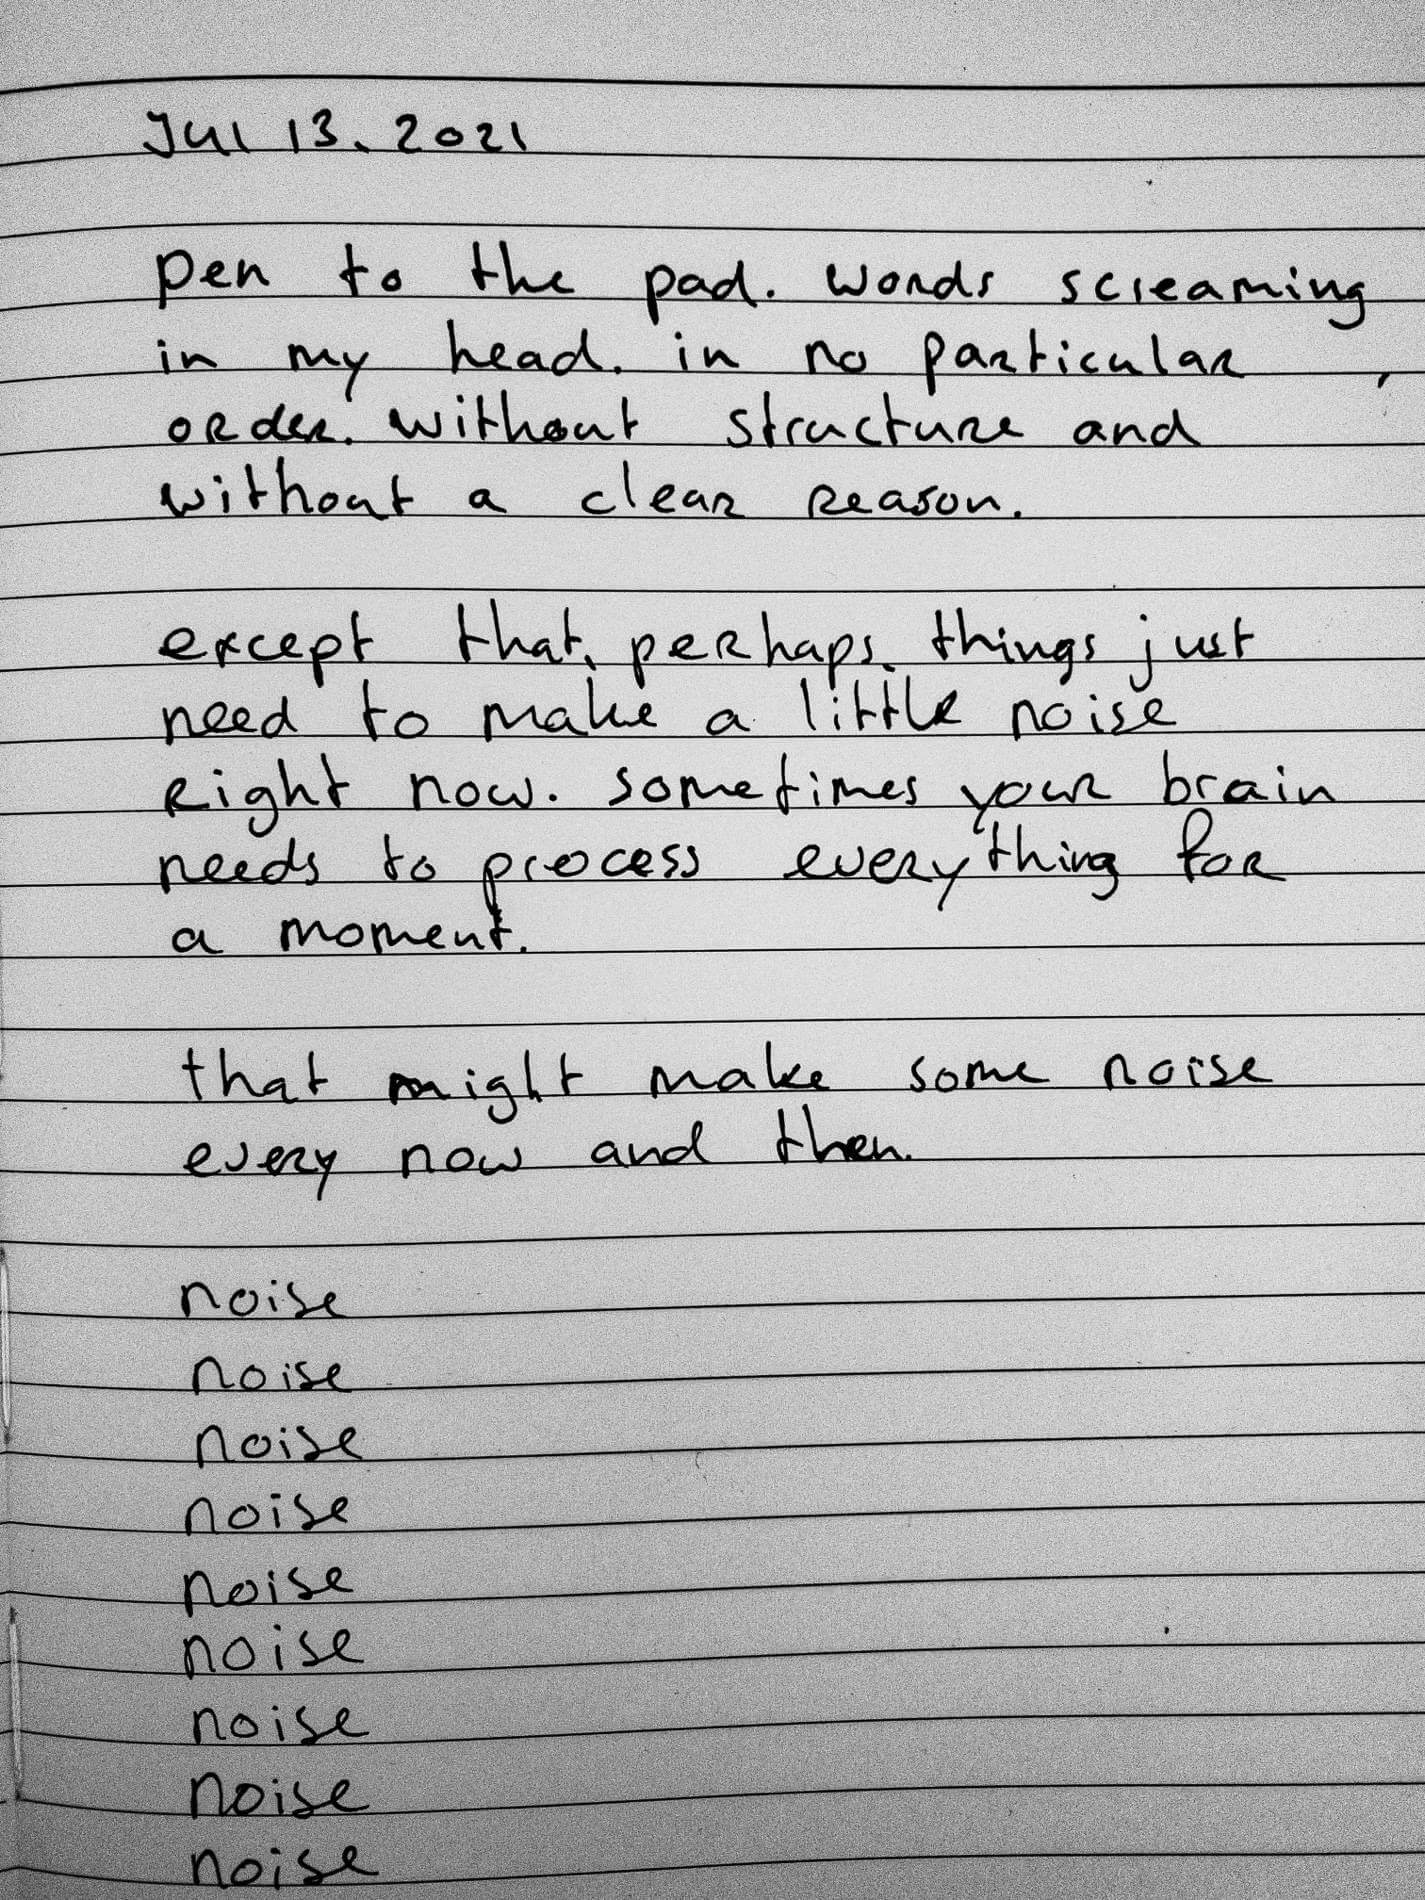 Jul 13. 2021
pen to the pad. words screaming
in my head. in no particular
order. without structure and
without a clear reason.
except that, perhaps, things just
need to make a little noise
right now. sometimes your brain
needs to process everything for
a moment.
that might make some noise
every now and then.
noise
noise
noise
noise
noise
noise
noise
noise
noise